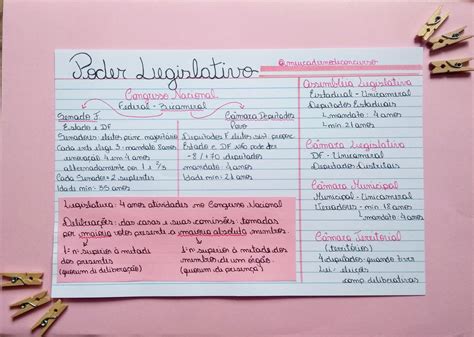 Poder Legislativo
@meucadernodeconcurso
Congresso Nacional
Federal - Bicameral
Senado F.
Estado e DF
Senadores eleitos princ majoritário
Cada ente elege 3. mandato 8 anos
renovação 4 em 4 anos
alternadamente por 1 e 2/3
Cada Senador = 2 suplentes
Idade min: 35 anos
Câmara Deputados
Povo
Deputados F eleitos sist proporc
Estado e DF não pode ter
-8 / +70 deputados
mandato: 4 anos
Idade min: 21 anos
Legislatura: 4 anos atividades no Congresso Nacional
Deliberações: das casas e suas comissões: tomadas
por maioria votos presente a maioria absoluta membros.
1º nº superior à metade
dos presentes
(quorum de deliberação)
1º nº superior à metade dos
membros de um órgão.
(quorum de presença)
Assembléia Legislativa
Estadual - Unicameral
Deputados Estaduais
mandato: 4 anos
min 21 anos
Câmara Legislativa
DF - Unicameral
Deputados Distritais
Câmara Municipal
Municipal - Unicameral
Vereadores - min 18 anos
mandato 4 anos
Câmara Territorial
(territórios)
4 deputados quando tiver
Lei - eleições
como deliberativas